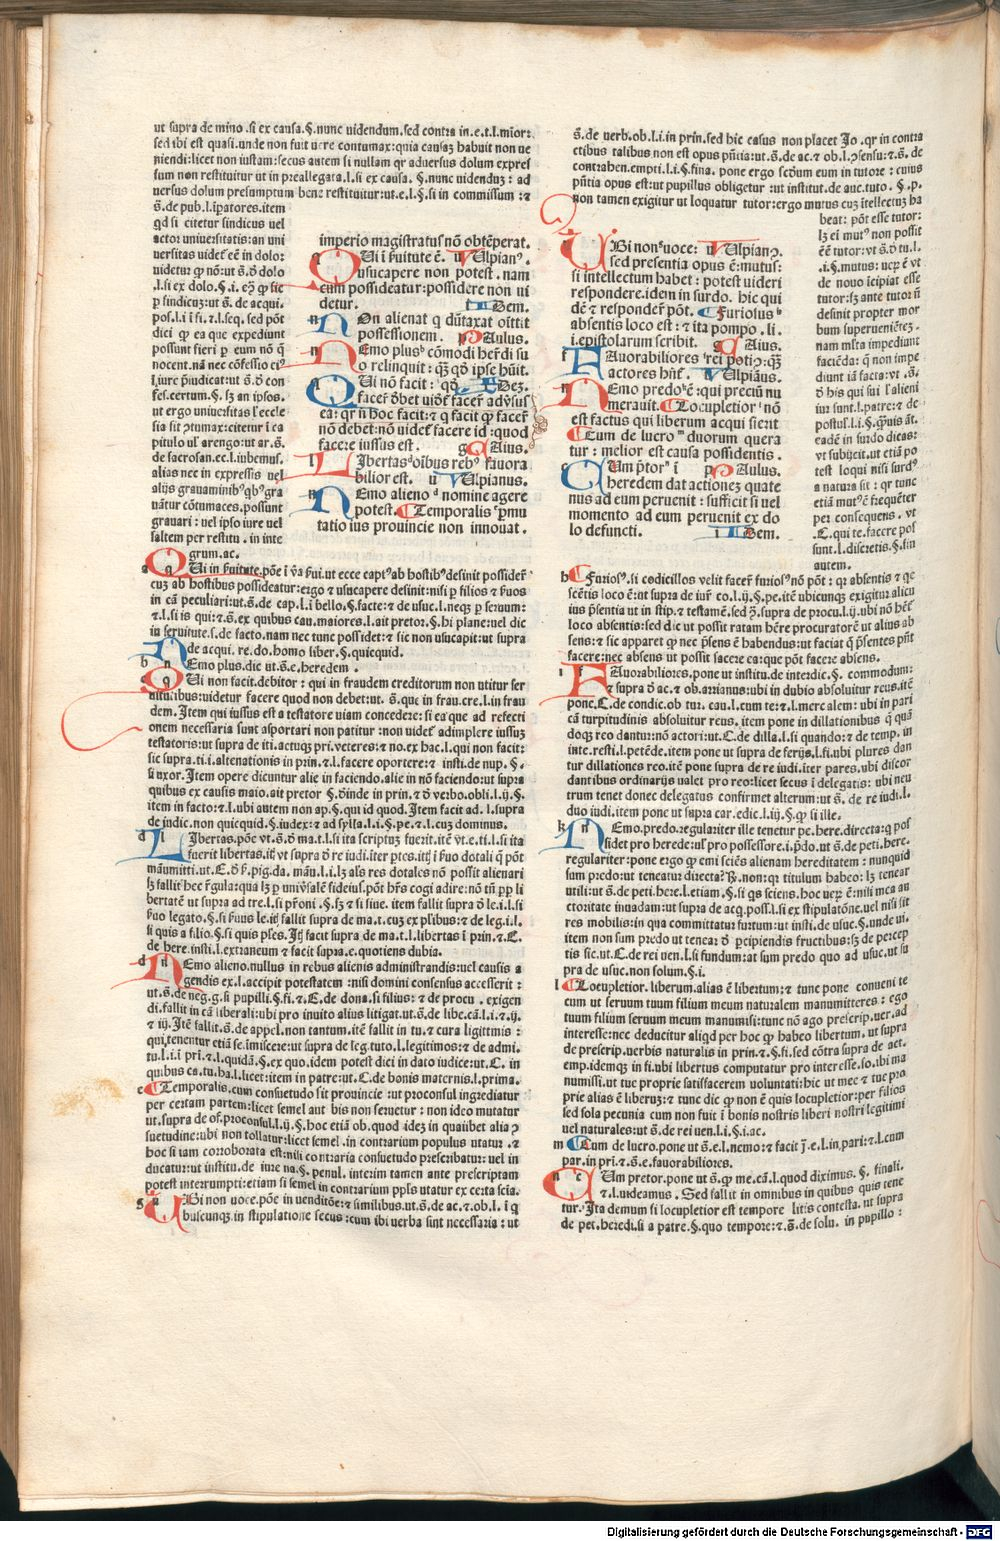 ut supra de mino.si ex causa.§.nunc uidendum.sed contra in.e.t.l.mior:
sed ibi est quasi.unde non fuit uere contumax:quia causaz habuit non ue
niendi:licet non iustam:secus autem si nullam qr aduersus dolum expres
sum non restituitur ut in preallegata.l.si ex causa. §.nunc uidenduz: ad
uersus dolum presumptum bene restituitur:ut.e.l.§.si in commissum :⁊
s̄.de pub.l.īpatores.item
qd si citetur sindicus uel
actor uniuersitatis:an uni
uersitas uidet̄ eē in dolo:
uidetur ꝙ nō:ut s̄.ō dolo
l.si ex dolo.§.i. eꝫ ꝙ sic
p sindicuz:ut s̄. de acqui.
pos.l.i ī fi. ⁊.l.seq. sed pōt
dici ꝙ ea que expediunt
possunt fieri p eum nō ꝙ
nocent.nā nec cōfessio ei⁹
l.iure p̄iudicat:ut s̄.ō con
fes.certum.§. sꝫ an ipsos.
ut ergo uniuersitas l'eccle
sia sit ꝯtumax:citetur i ca
pitulo ul' arengo:ut ar.s̄.
de sacrosan.ec.l.iubemus.
alias nec in expressis uel
alijs grauaminib⁹ qb⁹ gra
uātur cōtumaces.possunt
grauari: uel ipso iure uel
saltem per restitu . in inte
grum.ac.
imperio magistratus nō obtēperat.
Qui ī s̄uitute ē. Vlpian⁹.
usucapere non potest. nam
cum possideatur:possidere non ui
detur. IDem.
NOn alienat q dūtaxat oīttit
possessionem. p Paulus.
NEmo plus ᵇ cōmodi her̄di su
o relinquit : q̄ꝫ qō ipse hūit.
QUi nō facit : qō IDeꝫ.
facer̄ ōbet uidet̄ facer̄ aduersus
ea: qr n̄ hoc facit:⁊ q facit ꝙ facer̄
nō debet:nō uidet̄ facere id :quod
facere iussus est . g Gaius.
LIbertas ᶜ oībus reb⁹ fauora
bilior est. u Vlpianus.
NEmo alieno ᵈ nomine agere
potest. ¶Temporalis ᵉ p̄mu
tatio ius prouincie non innouat .
a QUi in s̄uitute.pōe ī v̄a s̄ui.ut ecce capt⁹ ab hostib⁹ desinit posider̄
cuꝫ ab hostibus possideatur:ergo ⁊ usucapere desinit:nisi p filios ⁊ s̄uos
in cā peculiari:ut.s̄.de cap.l.i bello.§.facte:⁊ de usuc.l.neqꝫ p seruum:
⁊.l.si is qui:⁊.s̄.ex quibus cau.maiores.l.ait pretor.§.hi plane:uel dic
in seruitute.s.de facto.nam nec tunc possidet:⁊ sic non usucapit:ut supra
de acqui. re.do.homo liber.§.quicquid.
b NEmo plus.dic ut.s̄.e.heredem .
c QUi non facit.debitor : qui in fraudem creditorum non utitur ser
uitutibus:uidetur facere quod non debet:ut. s̄.que in frau.cre.l.in frau
dem. Item qui iussus est a testatore uiam concedere:si ea que ad refecti
onem necessaria sunt asportari non patitur :non uidet̄ adimplere iussuꝫ
testatoris:ut supra de iti.actuqꝫ pri.veteres:⁊ no.ex hac.l.qui non facit:
sic supra.ti.i.alienationis in prin.⁊.l.facere oportere:⁊ insti.de nup. §.
si uxor.Item opere dicuntur alie in faciendo.alie in nō faciendo:ut supra
quibus ex causis maio.ait pretor §.ōinde in prin.⁊ ō verbo.obli.l.ij.§.
item in facto:⁊.l.ubi autem non ap.§.qui id quod. Item facit ad .l.supra
de iudic.non quicquid.§.iudex:⁊ ad sylla.l.i.§.pe.⁊.l.cuꝫ dominus.
d LIbertas.pōe vt.s̄.ō ma.t.l.si ita scriptuꝫ fuerit.itē vt.e.ti.l.si ita
fuerit libertas.itē vt supra ō re iudi.iter ptes.itē i s̄uo dotali q̄ pōt
māumitti.ut.C.ō s̄.pig.da. māu.l.i.lꝫ als res dotales nō possit alienari
lꝫ fallit hec r̄gula:qua lꝫ p uniūsale fideius.pōt hr̄s cogi adire:nō tn̄ pp li
bertatē ut supra ad tre.l.si pr̄oni .§.sꝫ ⁊ si siue. item fallit supra ō le.i.l.si
s̄uo legato.§.si s̄uus le.itē fallit supra de ma.t.cuꝫ ex plibus:⁊ de leg.i.l.
si quis a filio.§.si quis ples. Itē facit supra de ma.t.l.libertas ī prin.⁊.C.
de here.insti.l.extraneum ⁊ facit supra.e.quotiens dubia.
d NEmo alieno.nullus in rebus alienis administrandis:uel causis a
gendis ex.l.accipit potestatem :nisi domini consensus accesserit :
ut.s̄.de neg.g.si pupilli.§.fi.⁊.C.de dona.si filius: ⁊ de procu . exigen
di.fallit in cā liberali:ubi pro inuito alius litigat.ut.s̄.de libe.cā.l.i.⁊.ij.
⁊ iij. Itē fallit.s̄.de appel.non tantum.itē fallit in tu.⁊ cura ligittmis :
qui.tenentur etiā se.imiscere:ut supra de leg.tuto.l.legitimos:⁊ de admi.
tu.l.i.ī pri.⁊.l.quidā.§.ex quo.idem potest dici in dato iudice:ut.C. in
quibus ca.tu.ha.l.licet:item in patre:ut.C.de bonis maternis.l.prima.
e ¶Temporalis.cum consuetudo sit prouincie :ut proconsul ingrediatur
per certam partem:licet semel aut bis non seruetur : non ideo mutatur
ut.supra de of.proconsul.l.ij.§.hoc etiā ob.quod ideꝫ in qualibet alia ꝯ
suetudine:ubi non tollatur:licet semel.in contrarium populus utatur .⁊
hoc si tam corroborata est:nili contraria consuetudo prescribatur: uel in
ducatur:ut institu.de iure na.§.penul. interim tamen ante prescriptam
potest interrumpi:etiam si semel in contrarium ppls utatur ex certa scia.
g UBi non uoce.pōe in uenditōe:⁊ similibus.ut.s̄.de ac.⁊.ob.l. i q̄
buscunqꝫ.in stipulatione secus :cum ibi uerba sint necessaria : ut
s̄.de uerb.ob.l.i.in prin.sed hic casus non placet Jo .qr in contra
ctibus talibus non est opus pn̄tia:ut.s̄.de ac.⁊ ob.l.ꝯsensu:⁊.s̄. de
contrahen.empti.l.i.§.fina. pone ergo sc̄dum eum in tutore : cuius
pn̄tia opus est:ut pupillus obligetur :ut institut.de auc.tuto. §.p.
non tamen exigitur ut loquatur tutor:ergo mutus cuꝫ ītellectuꝫ ha
beat: pōt esse tutor:
lꝫ ei mut⁹ non possit
eē tutor:vt s̄.ō tu.l.
.i.§.mutus: ueꝝ ē vt
de nouo īcipiat esse
tutor:sꝫ ante tutor n̄
desinit propter mor
bum superueniētes.
nam mīta impediunt
faciēda: q̄ non impe
diunt iā facta:vt .s̄.
ō his qui sui l'alieni
iur sunt.l.patre:⁊ de
postul.l.i.§.q̄uis āt.
eadē in surdo dicas:
vt subijcit.ut etiā po
test loqui nisi surd⁹
a natura sit : qr tunc
etiā mut⁹ ē frequēter
per consequens . vt
.C.qui te.facere pos
sunt.l.discretis.§.fin
autem.
UBi non ᵃ uoce: u Vlpian⁹.
sed presentia opus ē:mutus:
si intellectum habet : potest uideri
respondere.idem in surdo. hic qui
dē ⁊ responder̄ pōt. ¶Furiosus ᵇ
absentis loco est : ⁊ ita pompo . li .
i.epistolarum scribit. g Gaius.
FAuorabiliores ᶜ rei poti⁹:q̄ꝫ
actores hn̄t. u Vlpiāus.
NEmo predo ᵏ ē :qui preciū nu
merauit. ¶Locupletior ˡ nō
est factus qui liberum acqui sierit
¶Cum de lucro ᵐ duorum quera
tur : melior est causa possidentis .
CUm p̄tor ⁿ i p Paulus.
heredem dat actioneꝫ quate
nus ad eum peruenit : sufficit si uel
momento ad eum peruenit ex do
lo defuncti. i IDem.
h ¶Furios⁹.si codicillos velit facer̄ furios⁹ nō pōt : qr absentis ⁊ qe
scētis loco ē:ut supra de iur̄ co.l.ij.§.pe.itē ubicunqꝫ exigitur alicu
ius p̄sentia ut in stip.⁊ testamē.sed ꝯ̄.supra de procu.l.ij.ubi nō hēt̄
loco absentis:sed dic ut possit ratam hēre procuratorē ut alius ab
sens:⁊ sic apparet ꝙ nec p̄sens ē habendus:ut faciat q̄ p̄sentes pn̄t
facere:nec absens ut possit facere ea:que pōt facere absens.
i FAuorabiliores.pone ut institu.de interdic.§. commodum:
⁊ supra ō ac.⁊ ob.arrianus:ubi in dubio absoluitur reus.itē
pone.C.de condic.ob tur. cau.l.cum te:⁊.l.mercalem: ubi in pari
cā turpitudinis absoluitur reus. item pone in dillationibus q̄ quā
doqꝫ reo dantur:nō actori:ut.C.de dilla.l.si quando:⁊ de temp. in
inte.resti.l.petēde.item pone ut supra de ferijs.l.fi.ubi plures dan
tur dillationes reo.itē pone supra de re iudi.iter pares.ubi discor
dantibus ordinarijs ualet pro reo:licet secus ī delegatis: ubi neu
trum tenet donec delegatus confirmet alterum:ut s̄. de re iudi.l.
duo iudi.item pone ut supra car.edic.l.iij.§.ꝙ si ille.
k NEmo.predo.regulariter ille tenetur pe.here.directa:q pos
sidet pro herede:ul' pro possessore.i.p̄do.ut s̄.de peti.here.
regulariter :pone ergo ꝙ emi sciēs alienam hereditatem : nunquid
sum predo:ut tenear directa?℟.non:qr titulum habeo: lꝫ tenear
utili:ut s̄.de peti.here.l.etiam .§.si qs sciens. hoc ueꝝ ē:nili mea au
ctoritate inuadam:ut supra de acq.poss.l.si ex stipulatōne.uel nisi sit
res mobilis:in qua committatur furtum:ut insti.de usuc.§.unde ui.
item non sum predo ut tenear ō pcipiendis fructibus:sꝫ de percep
tis sic.ut.C.de rei uen.l.si fundum:at sum predo quo ad usuc.ut su
pra de usuc.non solum.§.i.
l ¶Locupletior. liberum.alias ē libertum:⁊ tunc pone conueni te
cum ut seruum tuum filium meum naturalem manumitteres : ego
tuum filium seruum meum manumisi:tunc nō ago prescrip.uer.ad
interesse:nec deducitur aliqd per hoc ꝙ habeo libertum. ut supra
de prescrip.uerbis naturalis in prin.⁊.§.fi.sed cōtra supra de act.
emp.idemqꝫ in fi.ubi libertus computatur pro interesse.so.ibi ma
numissi.ut tue proprie satisfacerem uoluntati:hic ut mee ⁊ tue pro
prie alias ē liberuꝫ:⁊ tunc dic ꝙ non ē quis locupletior:per filios
sed sola pecunia cum non fuit i bonis nostris liberi nostri legitimi
uel naturales:ut s̄.de rei uen.l.i.§.i.ac.
m ¶Cum de lucro.pone ut s̄.e.l.nemo:⁊ facit j̄.e.l.in pari:⁊.l.cum
par.in pri.⁊.s̄.e.fauorabiliores.
n CUm pretor.pone ut s̄.ꝙ me.cā.l.quod diximus. §. finali.
⁊.l.uideamus . Sed fallit in omnibus in quibus quis tene
tur. Ita demum si locupletior est tempore litis contesta. ut supra
de pet.heredi.si a patre.§.quo tempore:⁊.s̄.de solu. in pupillo :
Digitalisierung gefördert durch die Deutsche Forschungsgemeinschaft - DFG